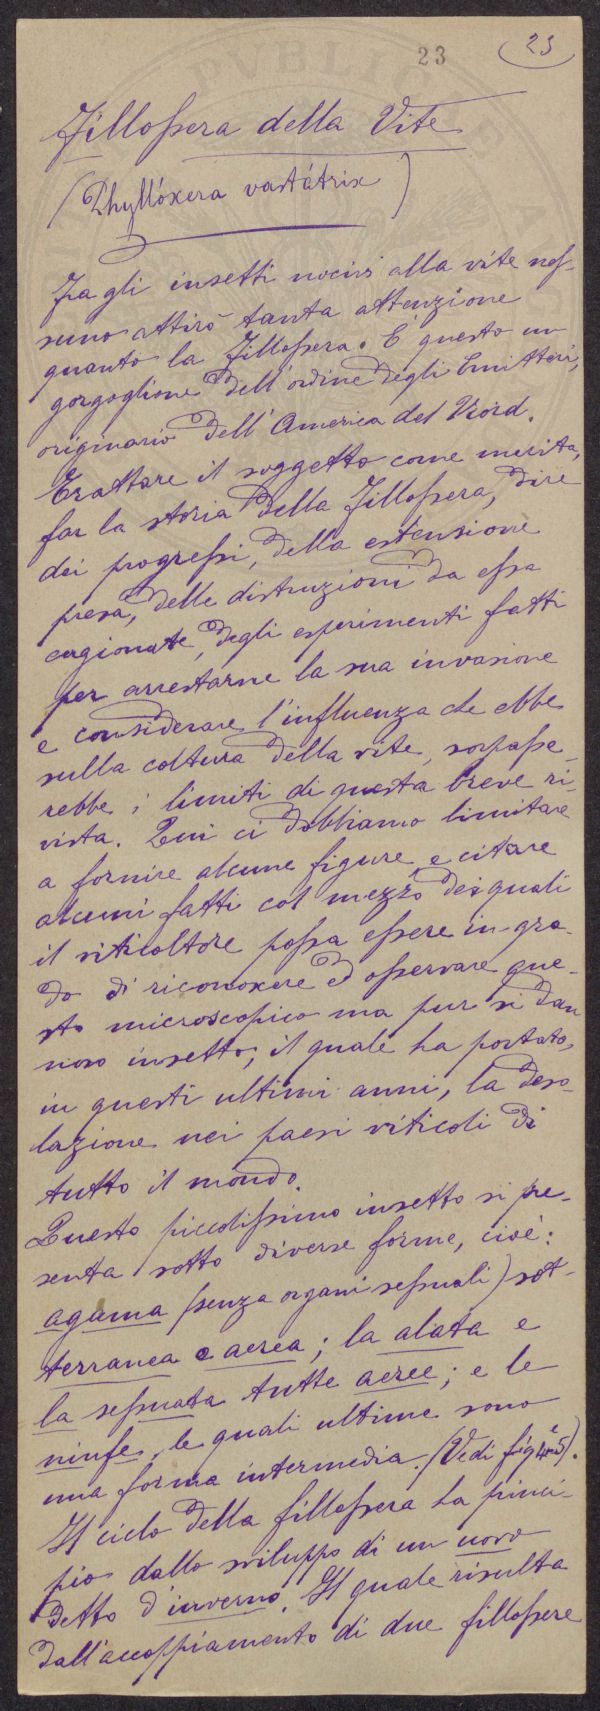 23
23
Fillossera della Vite
(Phyllóxera vastátrix)
Fra gli insetti nocivi alla vite nes-
suno attirò tanta attenzione
quanto la Fillossera. E' questo un
gorgoglione dell'ordine degli Emitteri,
originario dell'America del Nord.
Trattare il soggetto come merita,
far la storia della Fillossera, dire
dei progressi, della estensione
presa, delle distruzioni da essa
cagionate, degli esperimenti fatti
per arrestarne la sua invasione
e considerare l'influenza che ebbe
sulla coltura della vite, sorpasse-
rebbe i limiti di questa breve ri-
vista. Qui ci dobbiamo limitare
a fornire alcune figure, e citare
alcuni fatti col mezzo dei quali
il viticoltore possa essere in gra-
do di riconoscere ed osservare que-
sto microscopico ma pur sì dan
noso insetto; il quale ha portato,
in questi ultimi anni, la deso-
lazione nei paesi viticoli di
tutto il mondo.
Questo piccolissimo insetto si pre-
senta sotto diverse forme, cioè:
agama (senza organi sessuali) sot-
terranea e aerea; la alata e
la sessuata tutte aeree; e le
ninfe, le quali ultime sono
una forma intermedia. (Vedi fig 4 e 5).
Il ciclo della fillossera ha princi-
pio dallo sviluppo di un uovo
detto d'inverno. Il quale risulta
dall'accoppiamento di due fillossere